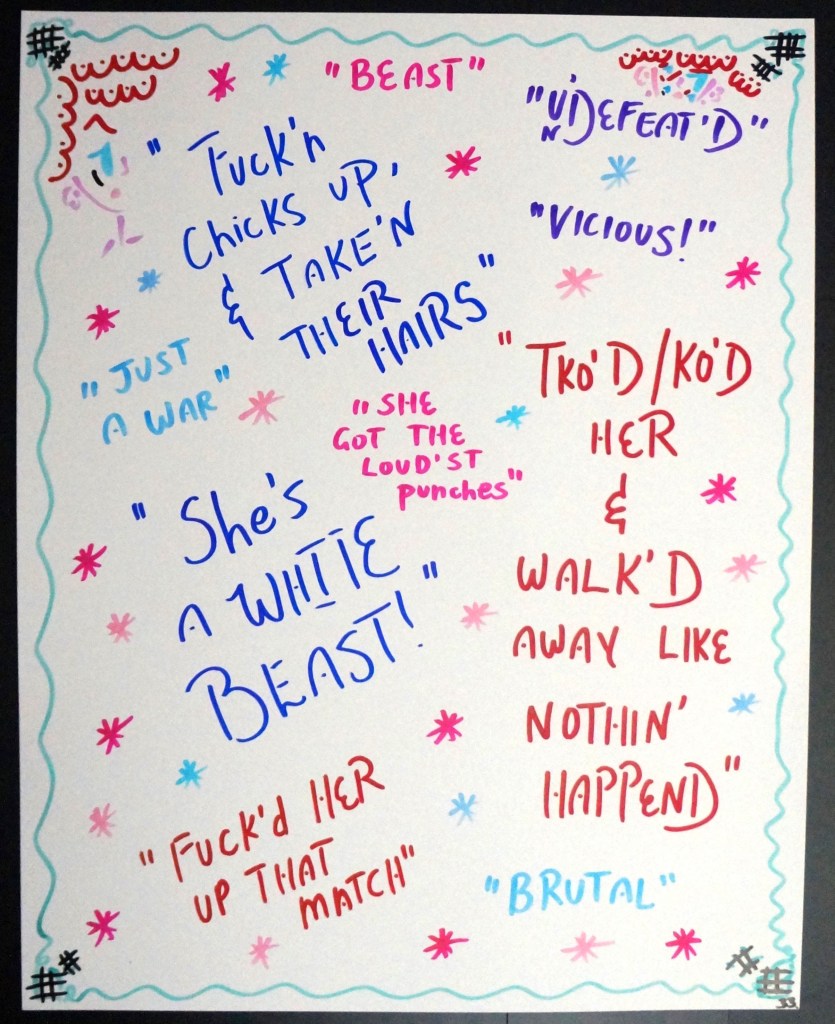 "BEAST"
"UNDEFEAT'D"
"Fuck'n
Chicks up,
& TAKE'N
THEIR
HAIRS"
"VICIOUS!"
"JUST
A WAR"
"SHE
GOT THE
LOUD'ST
punches"
"TKO'D/KO'D
HER
&
WALK'D
AWAY LIKE
NOTHIN'
HAPPEND"
"She's
A WHITE
BEAST!"
"Fuck'd HER
UP THAT
MATCH"
"BRUTAL"